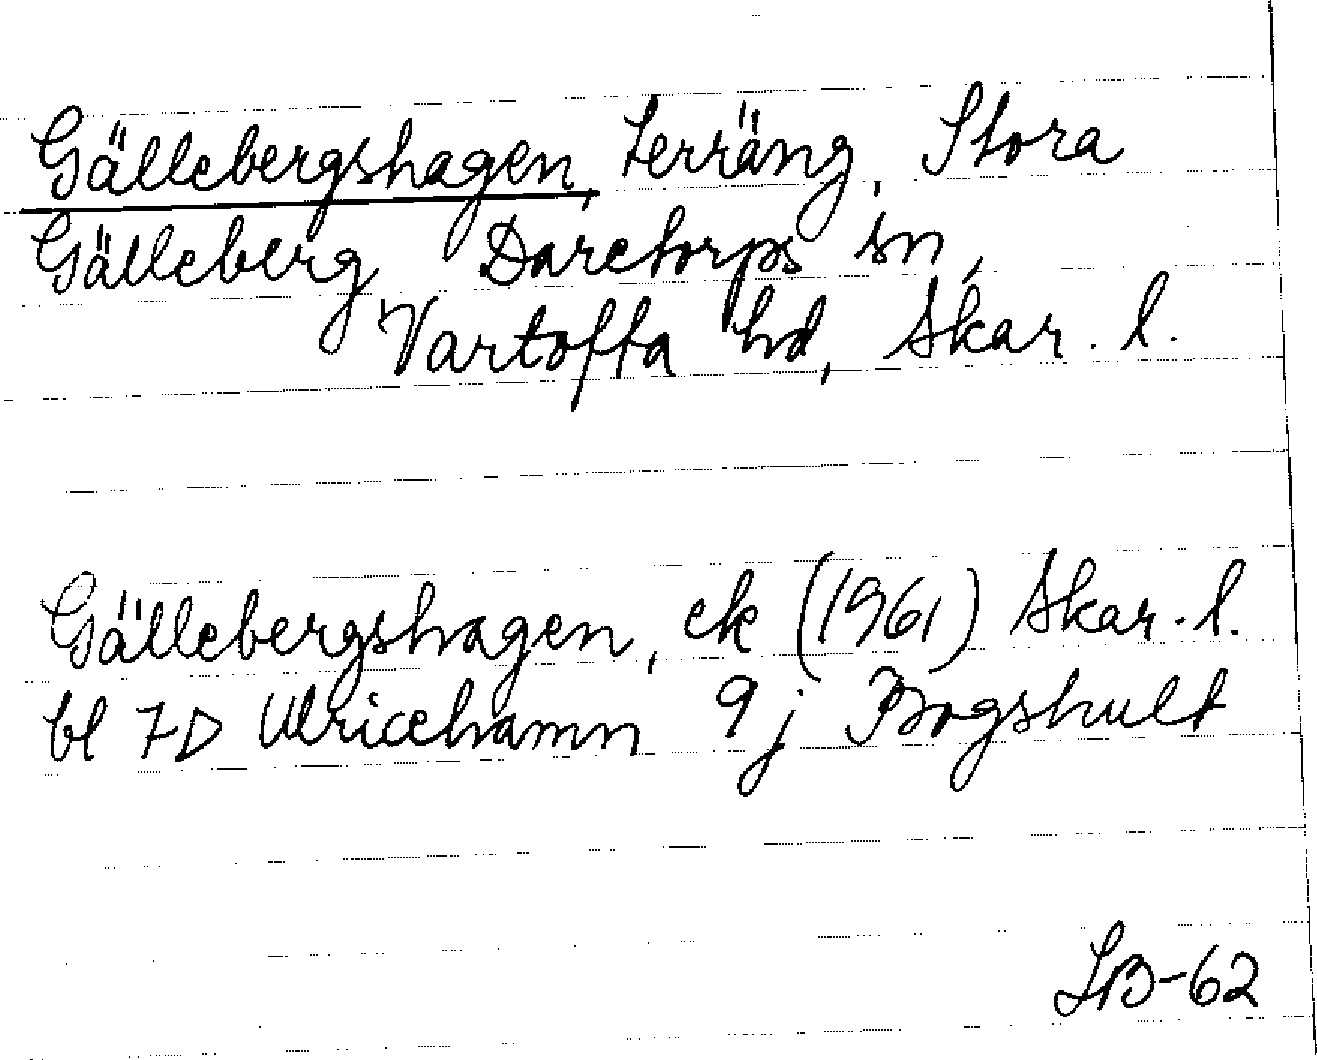 Gällebergshagen, terräng, Stora
Gälleberg Daretorps sn,
Vartofta hd, Skar. l.
Gällebergshagen, ek (1961) Skar. l.
bl 7D Ulricehamn 9j Bogshult
LB-62